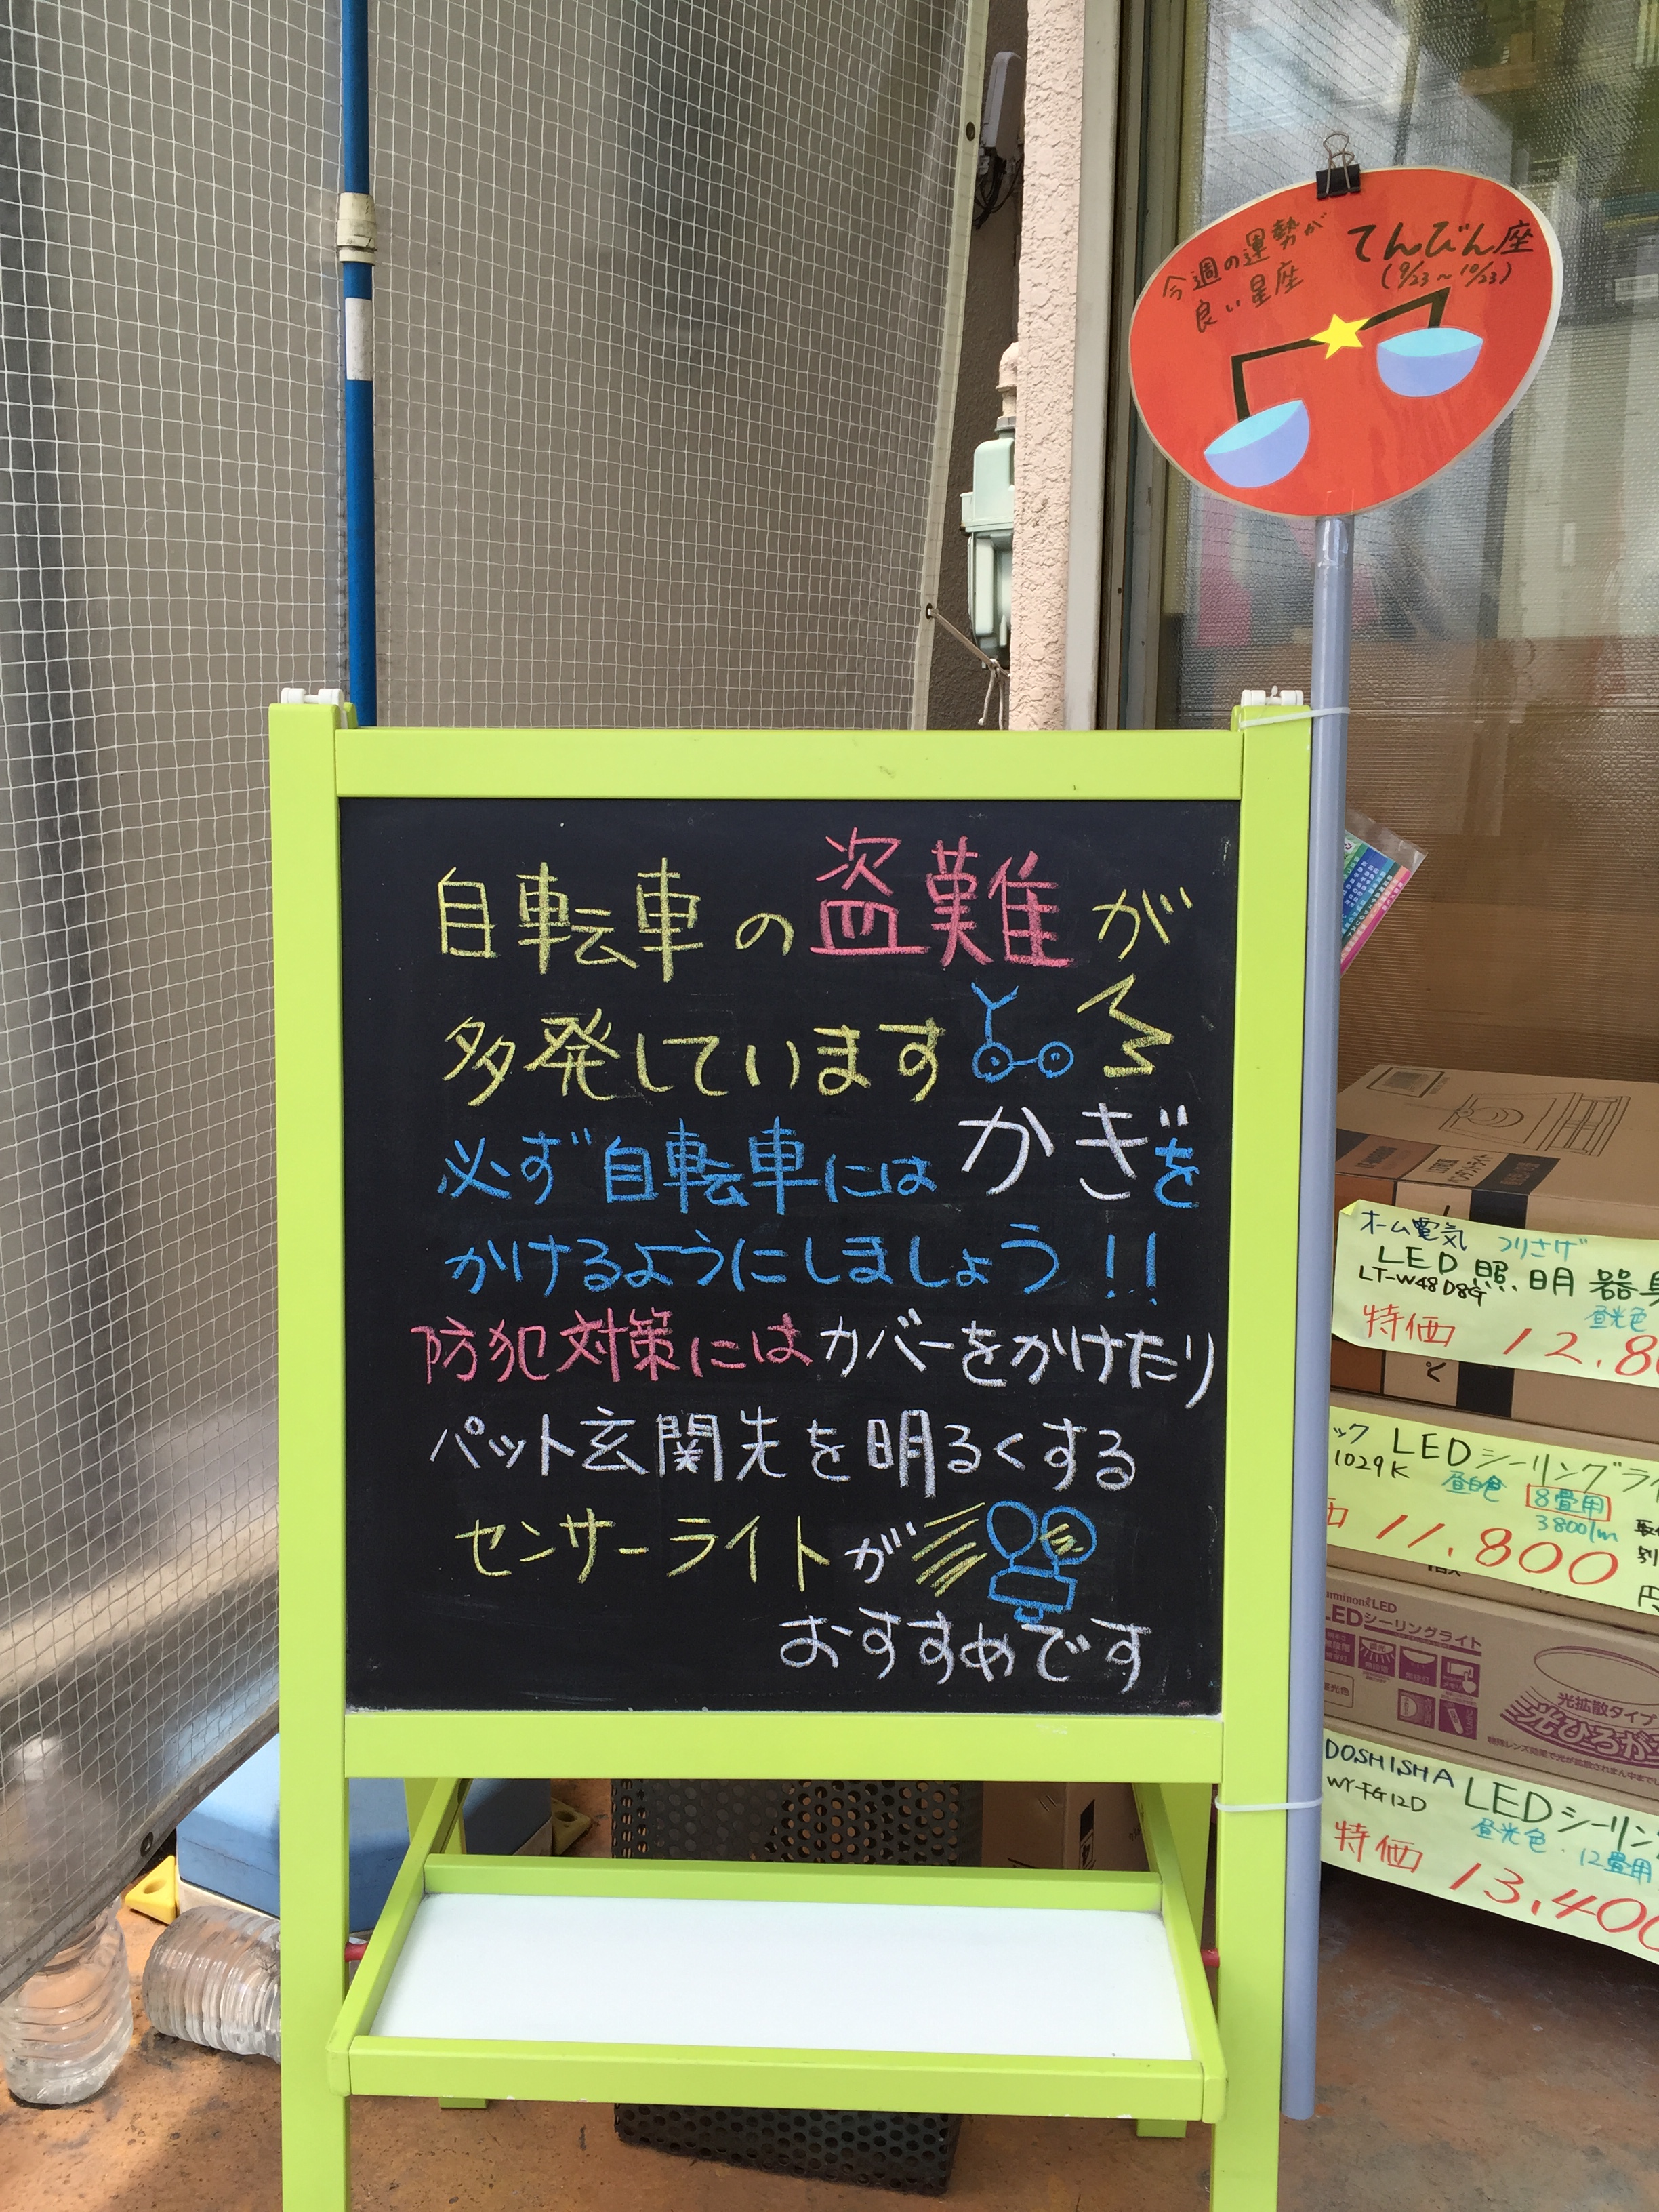 今週の運勢が
良い星座
てんびん座
(9/23～10/23)
自転車の盗難が
多発しています
必ず自転車にはかぎを
かけるようにしましょう!!
防犯対策にはカバーをかけたり
パット玄関先を明るくする
センサーライトが
おすすめです
オーム電気 つりさげ
LED照明器具
LT-W48D8G
昼光色
特価 12.8
ック LEDシーリングライ
1029K 昼白色 8畳用
3800lm
11.800
円
LED
LEDシーリングライト
光拡散タイプ
光ひろが
DOSHISHA LEDシーリン
WY-FG12D 昼光色・12畳用
特価 13,400